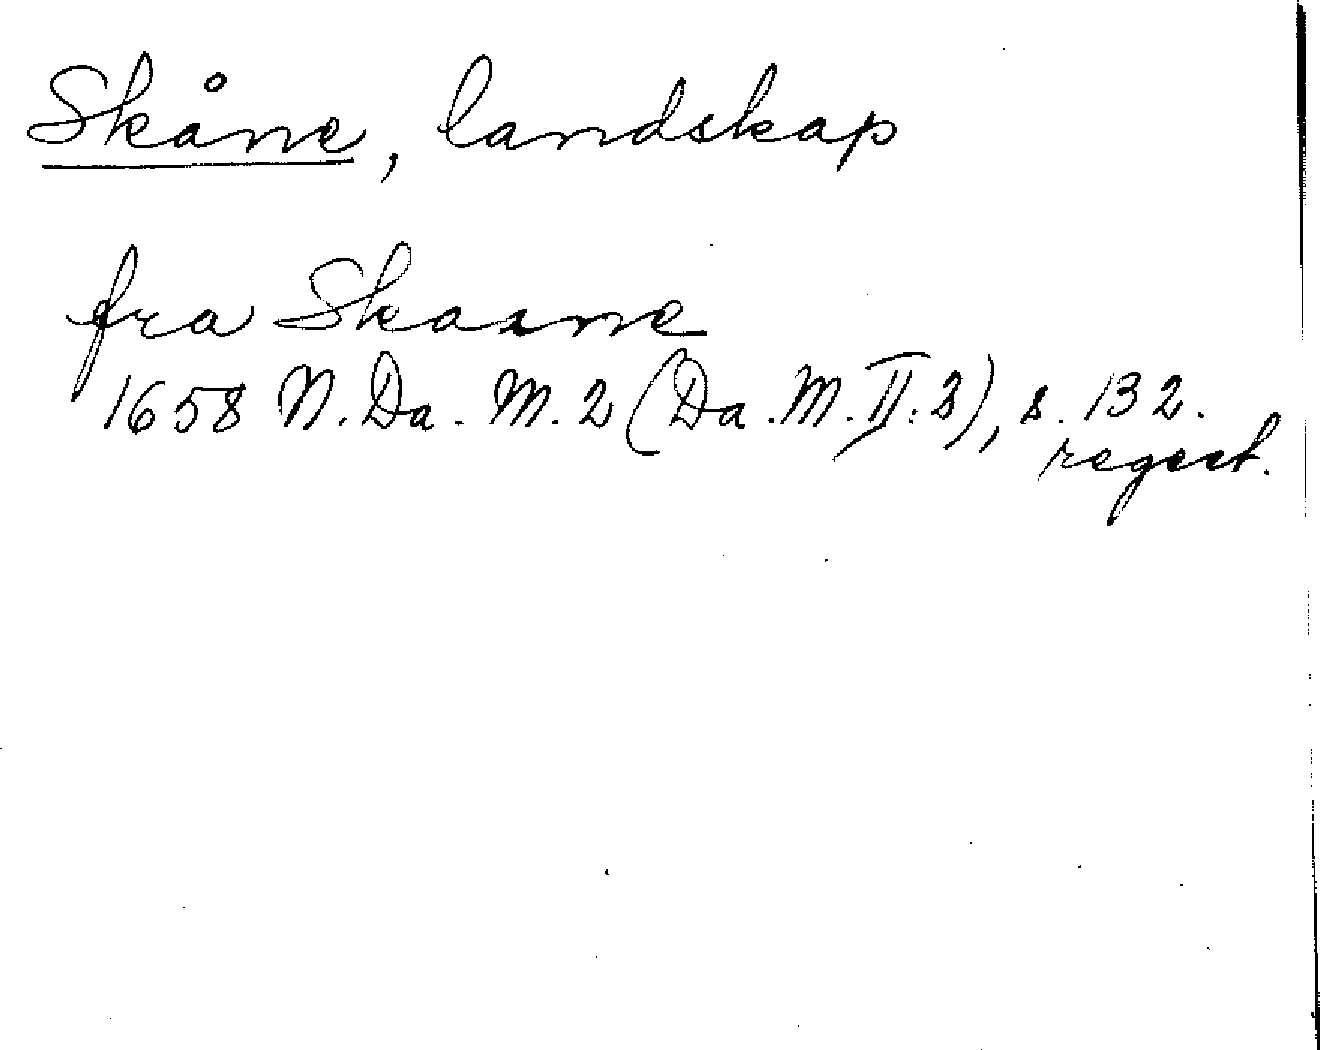 Skåne, landskap
fra Skaane
1658 N. Da. M. 2 (Da. M. II: 2), s. 132.
regest.